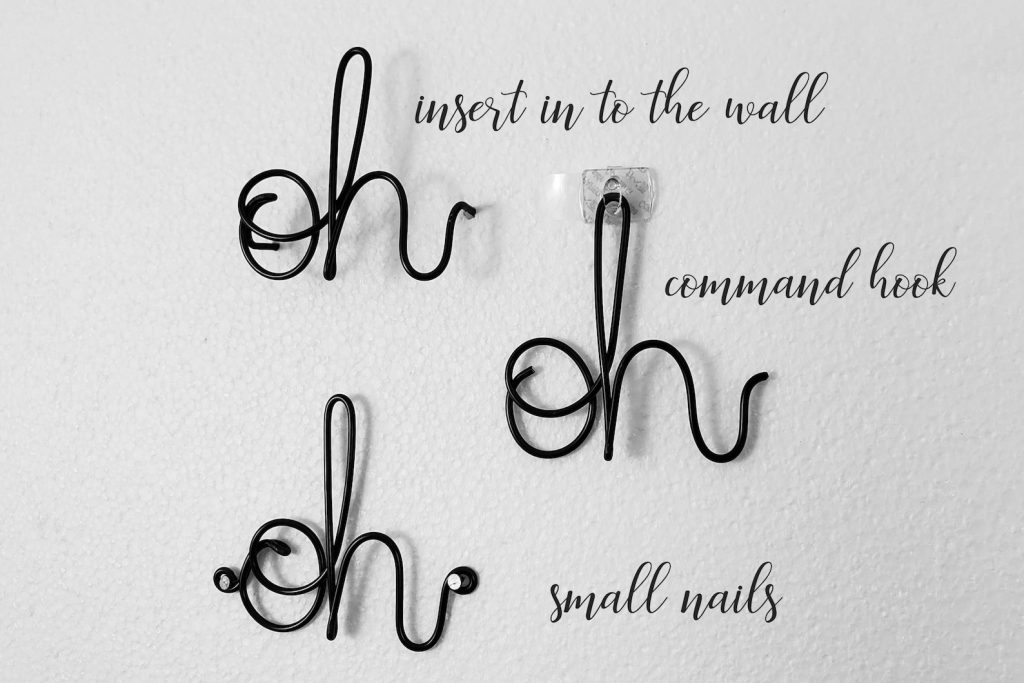 oh
insert in to the wall
oh
command hook
oh
small nails